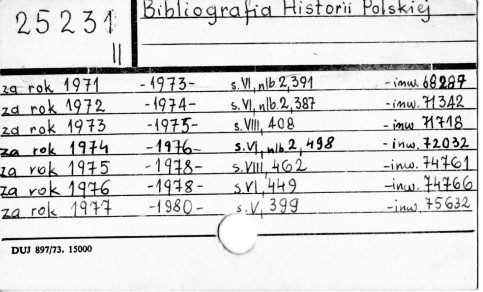 25231
II
Bibliografia Historii Polskiej
za rok 1971 -1973- s.VI, nlb.2, 391 -inw. 68287
za rok 1972 -1974- s.VI, nlb.2, 387 -inw. 71342
za rok 1973 -1975- s.VIII, 408 -inw 71718
za rok 1974 -1976- s.VI, nlb.2, 498 -inw. 72032
za rok 1975 -1978- s.VIII, 462 -inw. 74761
za rok 1976 -1978- s.VI, 449 -inw. 74766
za rok 1977 -1980- s.V, 399 -inw. 75632
DUJ 897/73. 15000